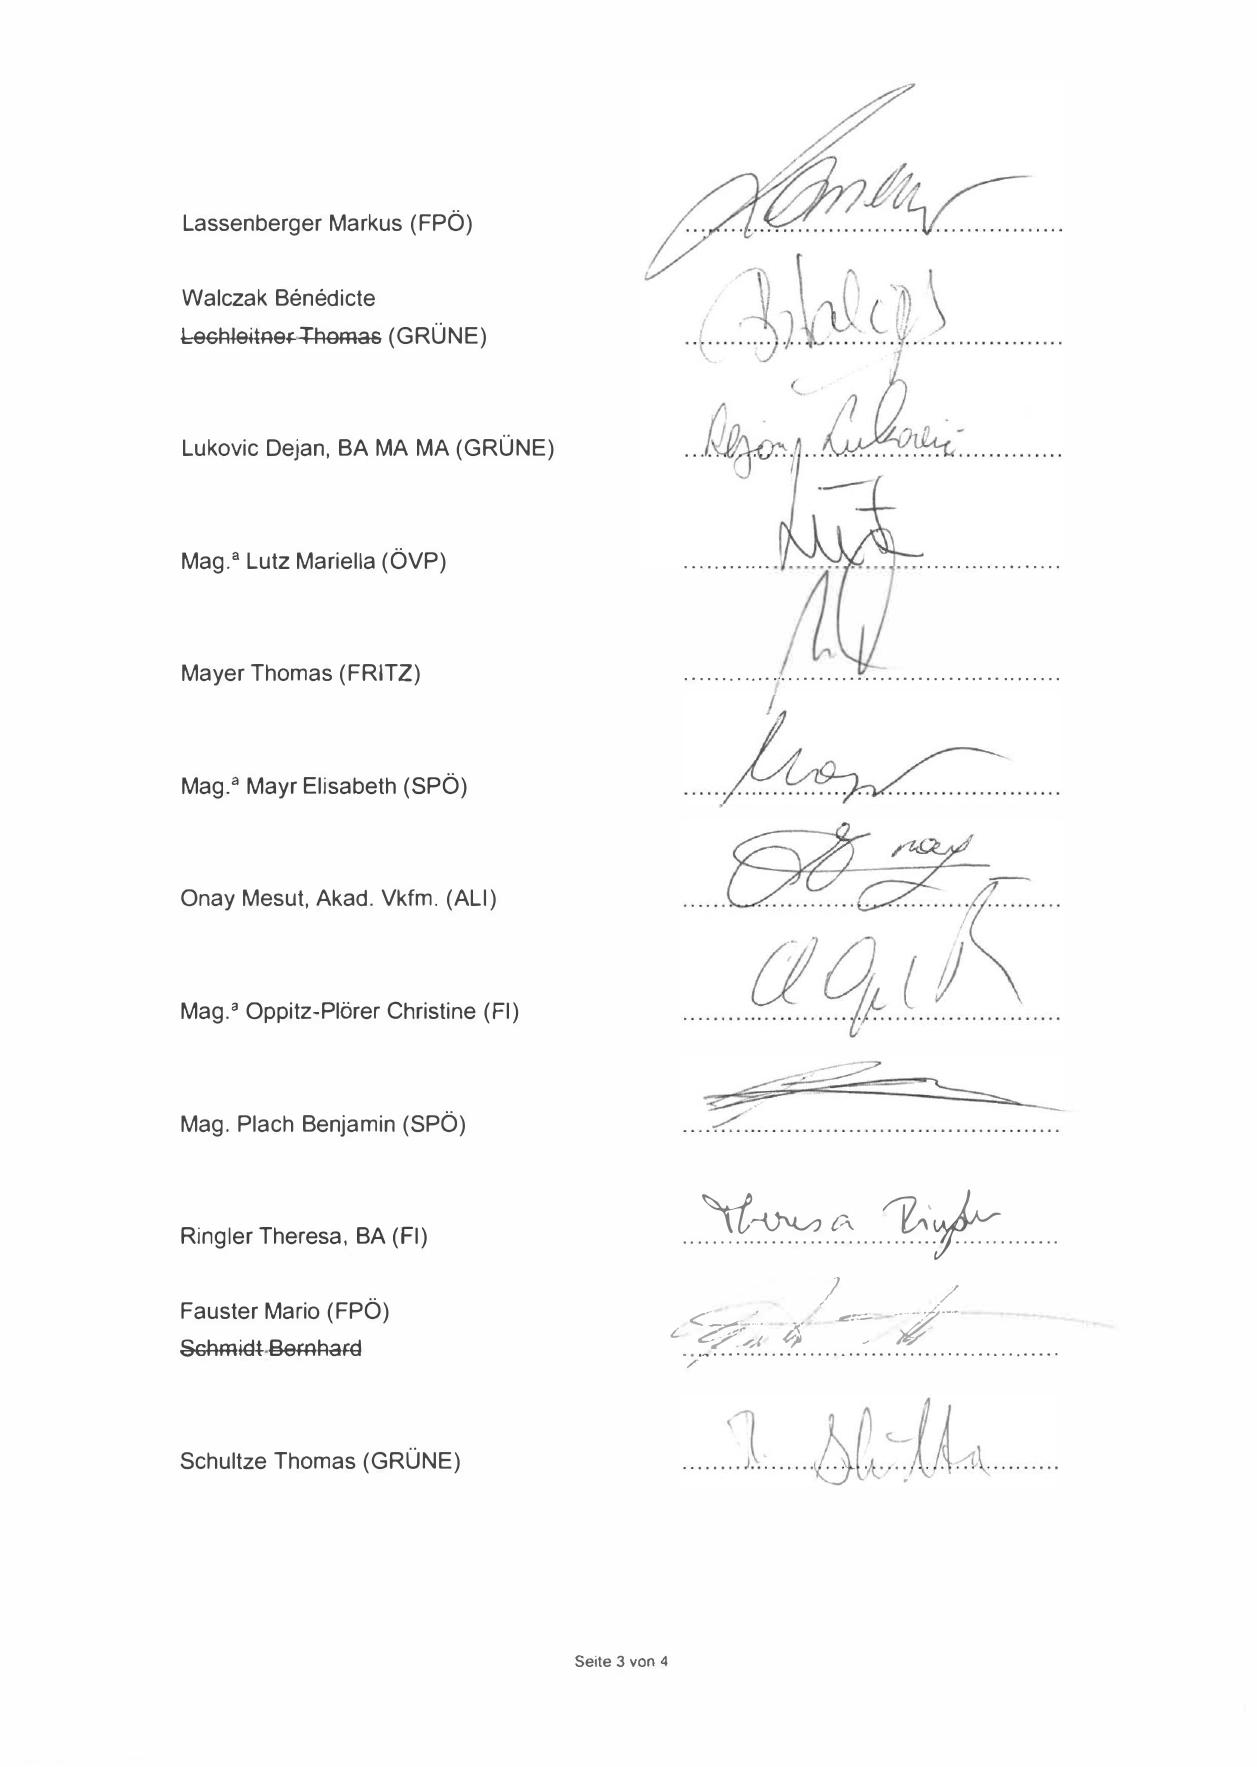 Lassenberger Markus (FPÖ)
Walczak Bénédicte
Lechleitner Thomas (GRÜNE)
Lukovic Dejan, BA MA MA (GRÜNE)
Dejan Lukovic
Mag.ª Lutz Mariella (ÖVP)
Lutz
Mayer Thomas (FRITZ)
Mag.ª Mayr Elisabeth (SPÖ)
Onay Mesut, Akad. Vkfm. (ALI)
Mag.ª Oppitz-Plörer Christine (FI)
Mag. Plach Benjamin (SPÖ)
Ringler Theresa, BA (FI)
Theresa Ringler
Fauster Mario (FPÖ)
Schmidt Bernhard
Schultze Thomas (GRÜNE)
Seite 3 von 4